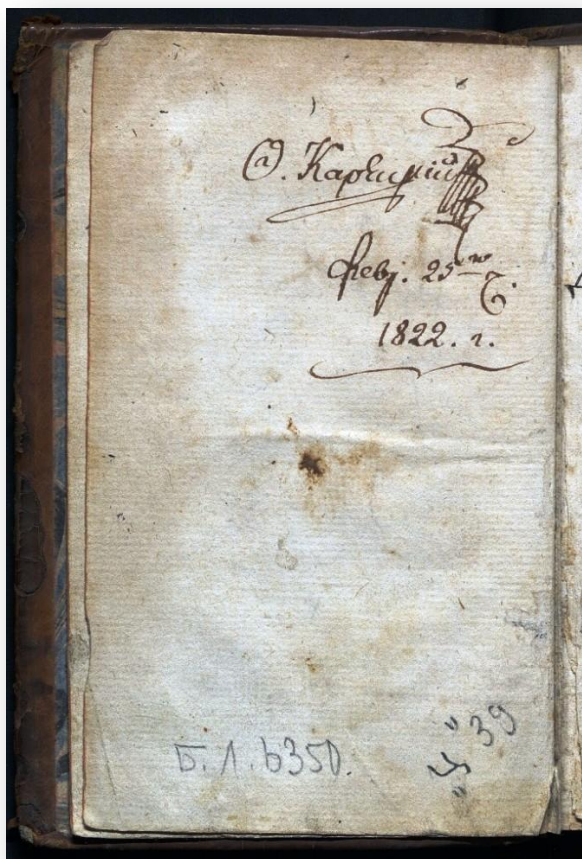 Ѳ. Карпицкій
февр. 25го
1822. г.
Б. Л. 6350.
39